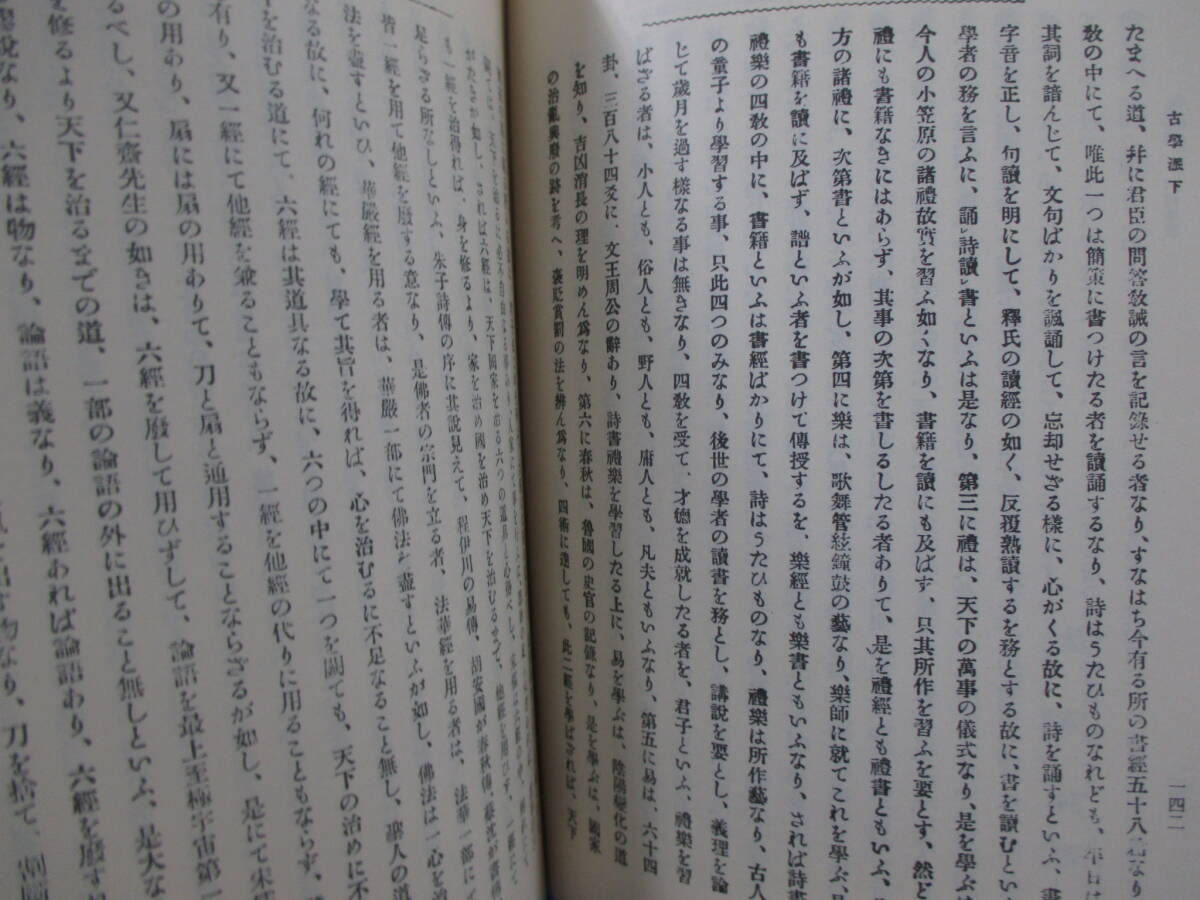 古學派下
一四二
たまへる道、幷に君臣の問答敎誡の言を記錄せる者なり、すなはち今有る所の書經五十八
敎の中にて、唯此一つは簡策に書つけたる者を讀誦するなり、詩はうたひものなれども、
其詞を諳んじて、文句ばかりを諷誦して、忘却せざる樣に、心がくる故に、詩を誦すといふ、書
字音を正し、句讀を明にして、釋氏の讀經の如く、反覆熟讀するを務とする故に、書を讀むとい
學者の務を言ふに、誦詩讀書といふは是なり、第三に禮は、天下の萬事の儀式なり、是を學ぶは
今人の小笠原の諸禮故實を習ふ如くなり、書籍を讀にも及ばず、只其所作を習ふを要とす、然ど
禮にも書籍なきにはあらず、其事の次第を書しるしたる者ありて、是を禮經とも禮書ともいふ、
方の諸禮に、次第書といふが如し、第四に樂は、歌舞管絃鐘鼓の藝なり、樂師に就てこれを學ぶ、
も書籍を讀に及ばず、譜といふ者を書つけて傳授するを、樂經とも樂書ともいふなり、されば詩書
禮樂の四敎の中に、書籍といふは書經ばかりにて、詩はうたひものなり、禮樂は所作藝なり、古人
の童子より學習する事、只此四つのみなり、後世の學者の讀書を務とし、講說を要とし、義理を論
じて歲月を過す樣なる事は無きなり、四敎を受て、才德を成就したる者を、君子といふ、禮樂を習
はざる者は、小人とも、俗人とも、野人とも、庸人とも、凡夫ともいふなり、第五に易は、六十四
卦、三百八十四爻に、文王周公の辭あり、詩書禮樂を學習したる上に、易を學ぶは、陰陽變化の道
を知り、吉凶消長の理を明めん爲なり、第六に春秋は、魯國の史官の記錄なり、是を學ぶは、國家
の治亂興廢の跡を考へ、褒貶賞罰の法を辨ん爲なり、四術に達しても、此二經を學ばざれば、天下
がたきが如し、されば六經は、天下國家を治る六つの道具と心得べし
も一經を治得れば、身を修るより、家を治め國を治め天下を治むるまで、他經を用ひず、一經にて
足らざる所なしといふ、朱子詩傳の序に其說見えて、程伊川の易傳、胡安國が春秋傳、蔡沈が書
皆一經を用て他經を廢する意なり、是佛者の宗門を立る者、法華經を用る者は、法華一部にて
法を盡すといひ、華嚴經を用る者は、華嚴一部にて佛法を盡すといふが如し、佛法は一心を
なる故に、何れの經にても、學て其旨を得れば、心を治むるに不足なること無し、聖人の道
を治むる道にて、六經は其道具なる故に、六つの中にて一つを闕ても、天下の治めに不
有り、又一經にて他經を兼ることもならず、一經を他經の代りに用ることもならず、
の用あり、扇には扇の用ありて、刀と扇と通用することならざるが如し、是にて宋
べし、又仁齋先生の如きは、六經を廢して用ひずして、論語を最上至極宇宙第一
を修るより天下を治るまでの道、一部の論語の外に出ること無しといふ、是大な
なり、六經は物なり、論語は義なり、六經あれば論語あり、六經を廢すれ
物なり、刀を捨て、